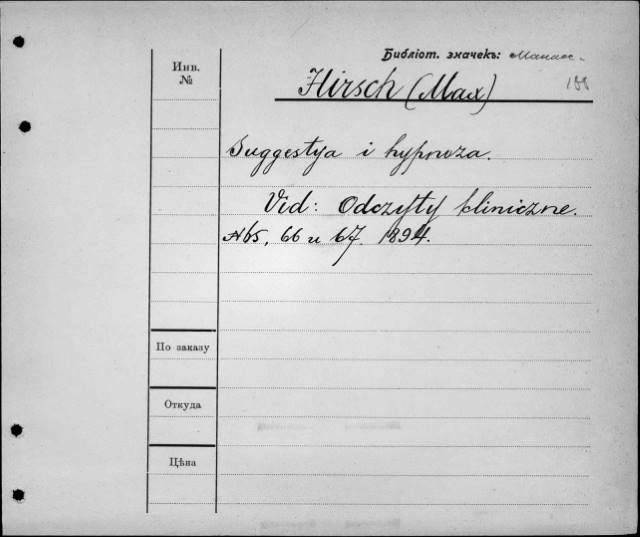 Библіот. значекъ:
Инв.
№
Hirsch (Max)
Suggestya i hypnoza.
Vid: Odczyty kliniczne.
№ 65, 66 и 67. 1894.
По заказу
Откуда
Цѣна